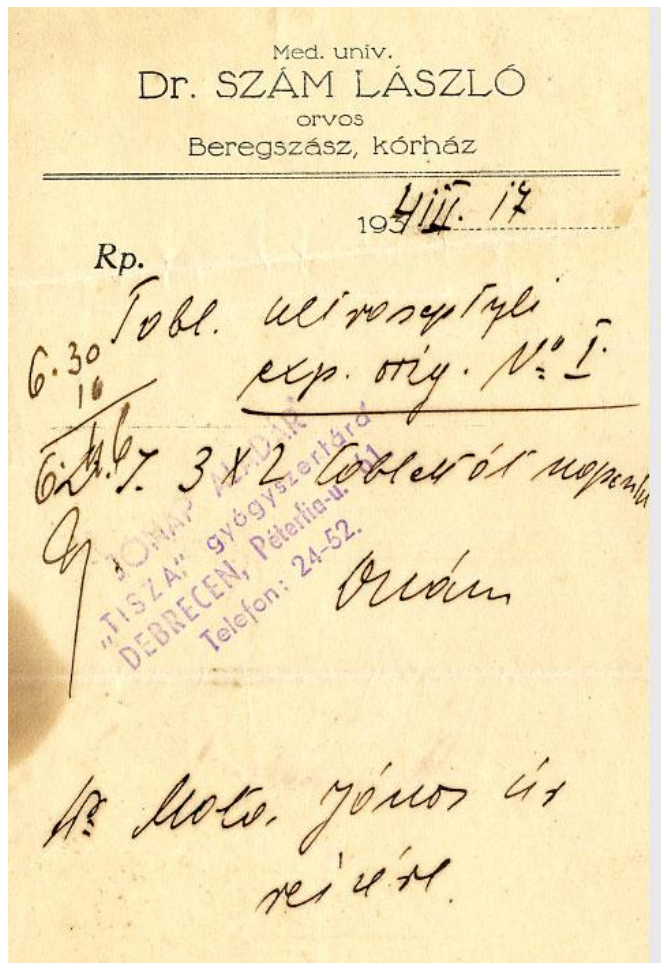 Med. univ.
Dr. SZÁM LÁSZLÓ
orvos
Beregszász, kórház
194 III. 17
Rp.
Tabl. ultraseptyli
exp. orig. No I.
6.30
16
6.46
S. 3 X 2 tablettát naponta
JÓNAP ALADÁR
„TISZA" gyógyszertára
DEBRECEN, Péterfia-u. 61
Telefon: 24-52.
János úr
részére.